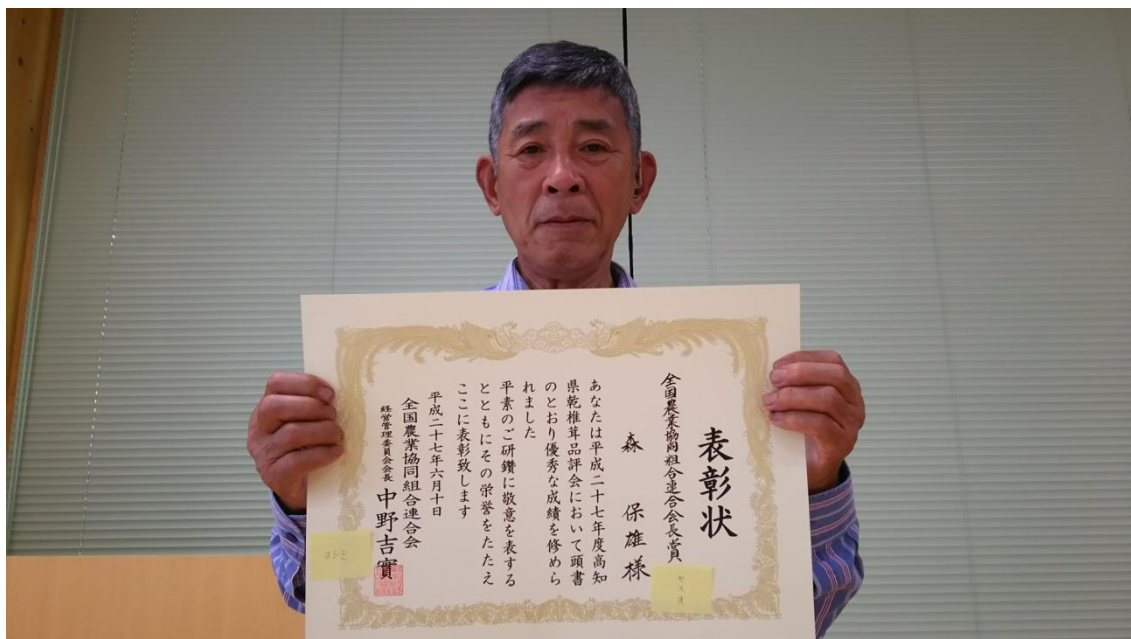 表彰状
全国農業協同組合連合会長賞
森 保雄様
ヤスオ
あなたは平成二十七年度高知
県乾椎茸品評会において頭書
のとおり優秀な成績を修めら
れました
平素のご研鑽に敬意を表する
とともにその栄誉をたたえ
ここに表彰致します
平成二十七年六月十日
全国農業協同組合連合会
経営管理委員会会長 中野吉實
ヨシミ